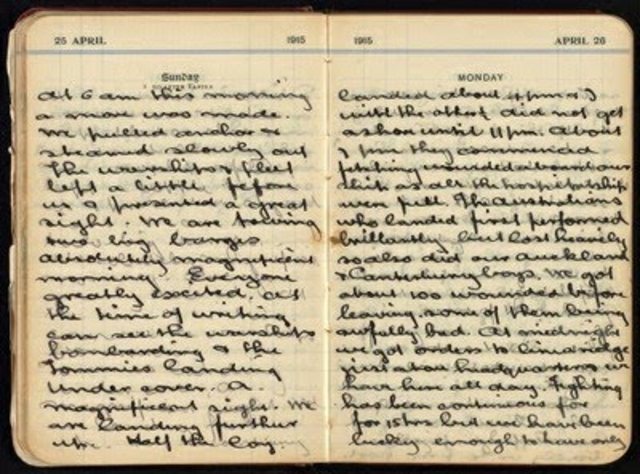 25 APRIL 1915
Sunday
At 6 am this morning
a move was made.
We pulled anchor &
steamed slowly out
The warships & fleet
left a little before
us & presented a great
sight. We are towing
two big barges
Absolutely magnificent
morning Everyone
greatly excited. At
the time of writing
can see the warships
bombarding & the
Tommies landing
under cover. A
magnificent sight. We
are landing further
up. Half the
1915 APRIL 26
MONDAY
landed about 4 pm & I
with the others did not get
ashore until 11 pm. About
7 pm they commenced
fetching wounded aboard our
ship as all the hospital ships
were full. The Australians
who landed first performed
brilliantly but lost heavily
so also did our Auckland
& Canterbury boys. We got
about 100 wounded before
leaving some of them being
awfully bad. At midnight
we got orders to
just above headquarters we
have been all day. Fighting
has been continuous for
for 15 hrs but we have been
lucky enough to have only